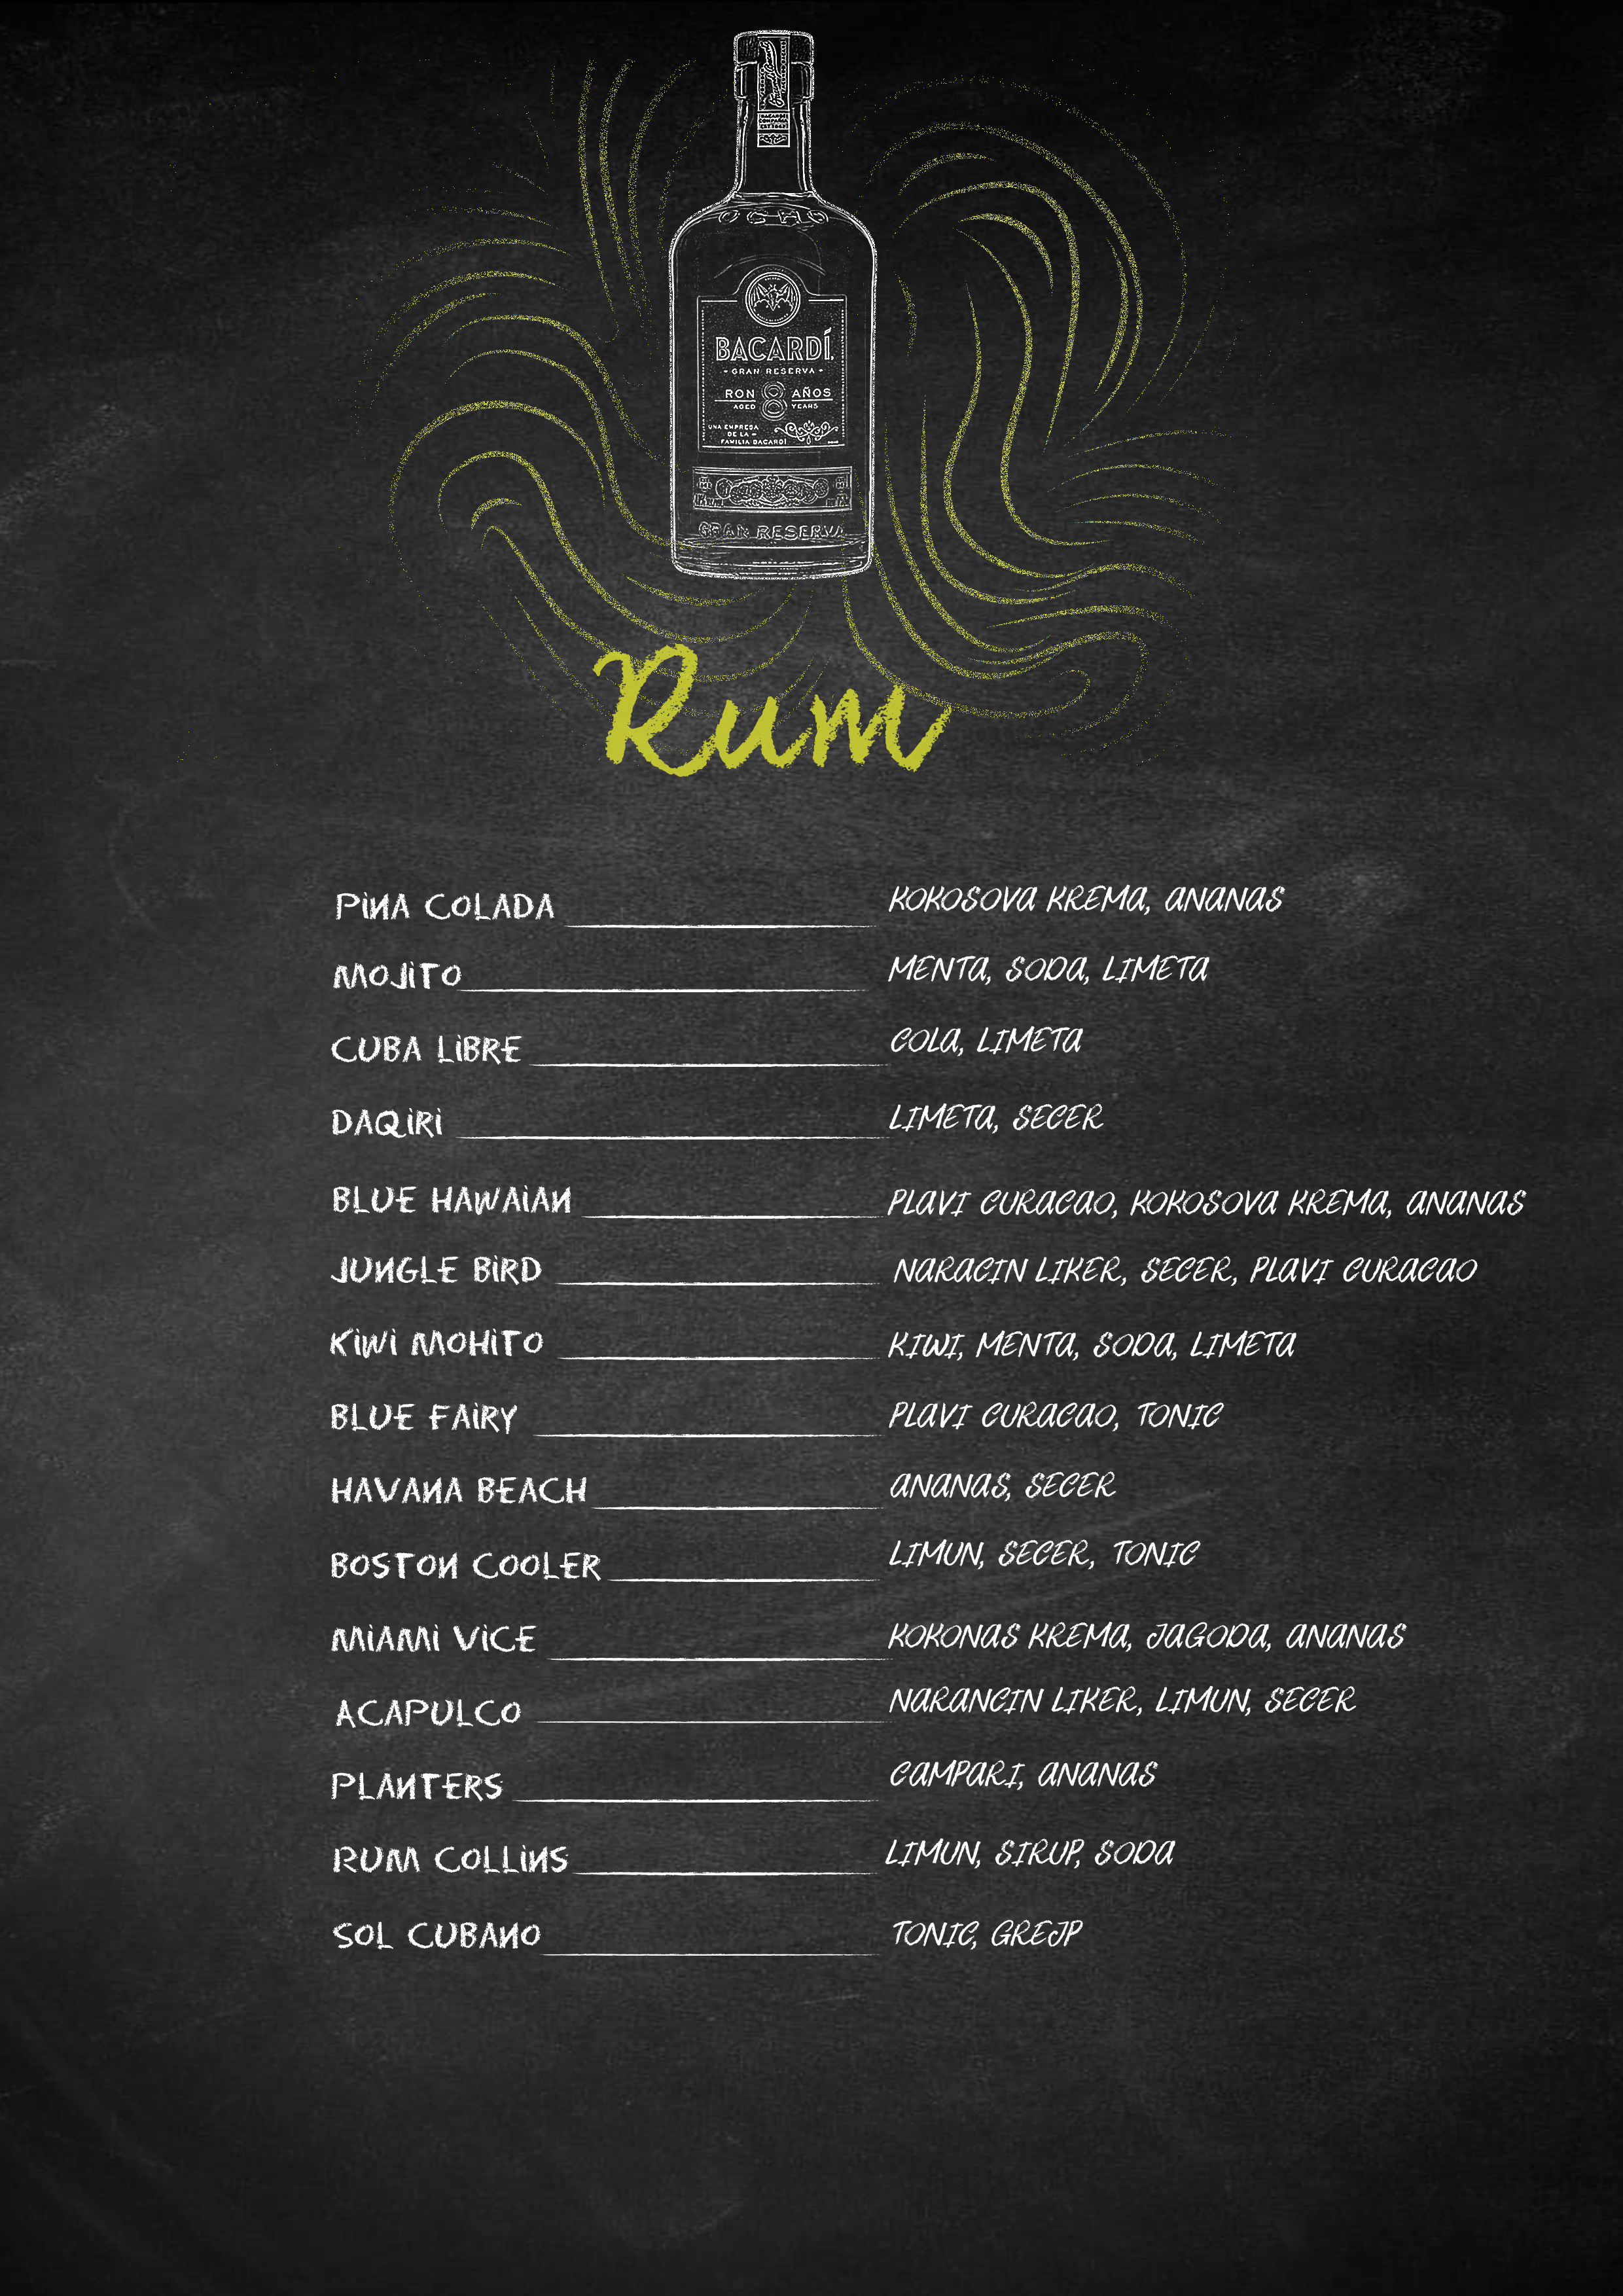 OCHO
BACARDÍ.
GRAN RESERVA
RON 8 AÑOS
AGED YEARS
UNA EMPRESA
DE LA
FAMILIA BACARDÍ
GRAN RESERVA
Rum
PINA COLADA KOKOSOVA KREMA, ANANAS
MOJITO MENTA, SODA, LIMETA
CUBA LIBRE COLA, LIMETA
DAQIRI LIMETA, SECER
BLUE HAWAIAN PLAVI CURACAO, KOKOSOVA KREMA, ANANAS
JUNGLE BIRD NARACIN LIKER, SECER, PLAVI CURACAO
KIWI MOHITO KIWI, MENTA, SODA, LIMETA
BLUE FAIRY PLAVI CURACAO, TONIC
HAVANA BEACH ANANAS, SECER
BOSTON COOLER LIMUN, SECER, TONIC
MIAMI VICE KOKONAS KREMA, JAGODA, ANANAS
ACAPULCO NARANCIN LIKER, LIMUN, SECER
PLANTERS CAMPARI, ANANAS
RUM COLLINS LIMUN, SIRUP, SODA
SOL CUBANO TONIC, GREJP